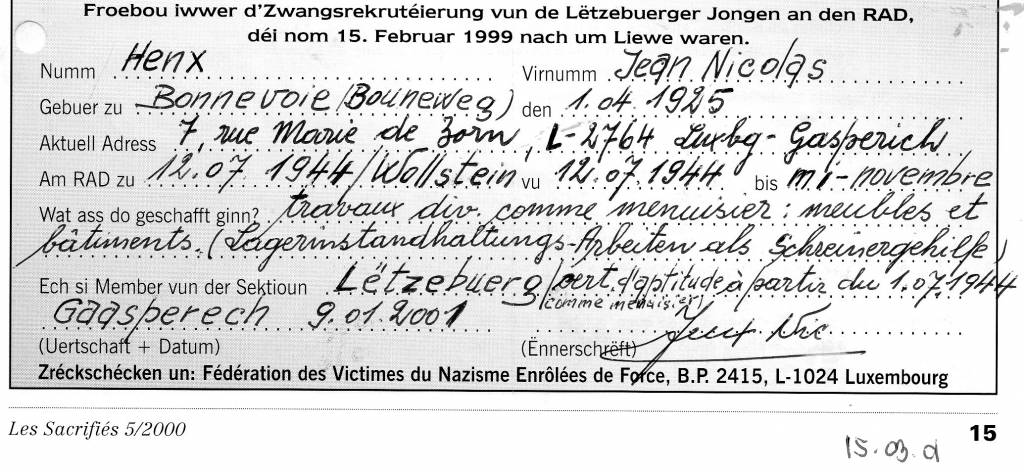 Froebou iwwer d'Zwangsrekrutéierung vun de Lëtzebuerger Jongen an den RAD,
déi nom 15. Februar 1999 nach um Liewe waren.
Numm Henx Virnumm Jean Nicolas
Gebuer zu Bonnevoie (Bouneweg) den 1.04.1925
Aktuell Adress 7, rue Marie de Zorn, L-2764 Luxbg-Gasperich
Am RAD zu 12.07.1944/Wollstein vu 12.07.1944 bis mi-novembre
Wat ass do geschafft ginn? travaux div. comme menuisier: meubles et
bâtiments. (Lagerinstandhaltungs-Arbeiten als Schreinergehilfe)
Ech si Member vun der Sektioun Lëtzebuerg/cert. d'aptitude à partir du 1.07.1944
(comme menuisier)
Gaasperech 9.01.2001
(Uertschaft + Datum) (Ënnerschrëft)
Zréckschécken un: Fédération des Victimes du Nazisme Enrôlées de Force, B.P. 2415, L-1024 Luxembourg
Les Sacrifiés 5/2000 15
15.03.